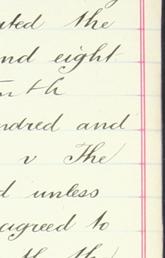 uted the
nd eight
nth
ndred and
v The
d unless
agreed to
th the